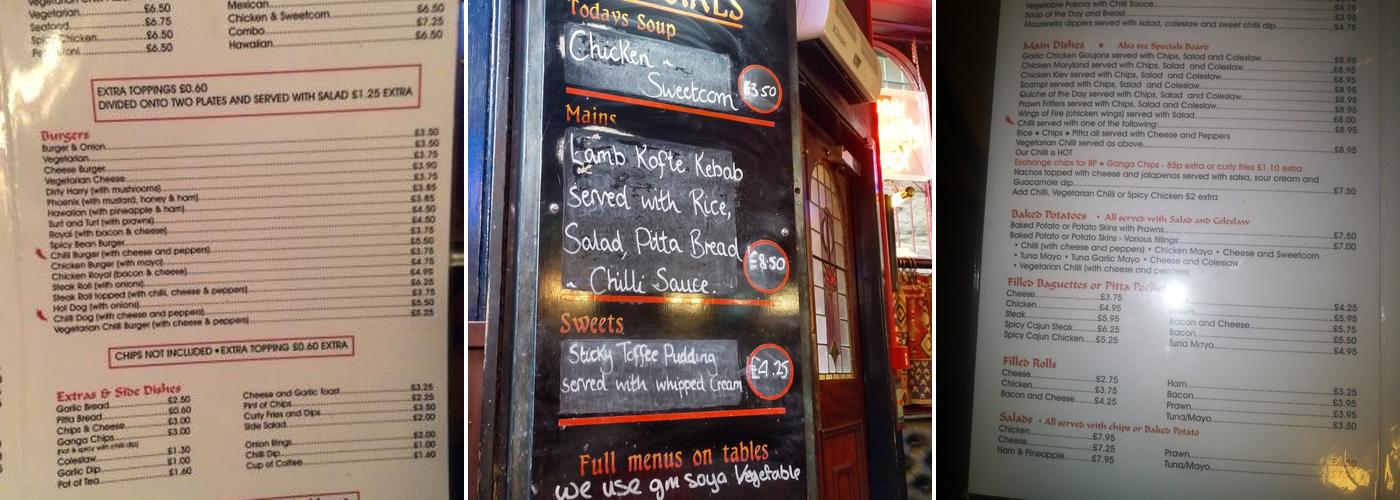 Vegetarian £6.50
Seafood £6.75
Chicken £6.50
£6.50
Mexican £6.50
Chicken & Sweetcorn £7.25
Combo £6.50
Hawaiian
EXTRA TOPPINGS £0.60
DIVIDED ONTO TWO PLATES AND SERVED WITH SALAD £1.25 EXTRA
Burgers
Burger & Onion £3.50
Vegetarian £3.50
Cheese Burger £3.75
Vegetarian Cheese £3.90
Dirty Harry (with mushrooms) £3.75
Phoenix (with mustard, honey & ham) £3.85
Hawaiian (with pineapple & ham) £3.85
Surf and Turf (with prawns) £4.50
Royal (with bacon & cheese) £4.50
Spicy Bean Burger £3.75
Chilli Burger (with cheese and peppers) £5.50
Chicken Burger (with mayo) £3.75
Chicken Royal (bacon & cheese) £4.75
Steak Roll (with onions) £4.95
Steak Roll topped (with chilli, cheese & peppers) £6.25
Hot Dog (with onions) £3.75
Chilli Dog (with cheese and peppers) £5.50
Vegetarian Chilli Burger (with cheese & peppers) £5.25
CHIPS NOT INCLUDED • EXTRA TOPPING £0.60 EXTRA
Extras & Side Dishes
Garlic Bread £2.50
Pitta Bread £0.60
Chips & Cheese £3.00
Ganga Chips £3.00
(hot & spicy with chilli dip)
Coleslaw £1.30
Garlic Dip £1.00
Pot of Tea £1.60
Cheese and Garlic Toast £3.25
Pint of Chips £2.25
Curly Fries and Dips £3.50
Side Salad £2.00
Onion Rings £2.00
Chilli Dip £1.00
Cup of Coffee £1.60
Todays Soup
Chicken ~
Sweetcorn £3.50
Mains
Lamb Kofte Kebab
served with Rice,
Salad, Pitta Bread £8.50
~ Chilli Sauce.
Sweets
Sticky Toffee Pudding
served with whipped Cream £4.25
Full menus on tables
we use gm soya Vegetable
Vegetable Pakora with Chilli Sauce £4.75
Soup of the Day and Bread £3.95
Mozzarella dippers served with salad, coleslaw and sweet chilli dip £4.75
Main Dishes • Also see Specials Board
Garlic Chicken Goujons served with Chips, Salad and Coleslaw £8.95
Chicken Maryland served with Chips, Salad and Coleslaw £8.95
Chicken Kiev served with Chips, Salad and Coleslaw £8.95
Scampi served with Chips, Salad and Coleslaw £8.95
Quiche of the Day served with Chips, Salad and Coleslaw £8.95
Prawn Fritters served with Chips, Salad and Coleslaw £8.95
Wings of Fire (chicken wings) served with Salad £8.00
Chilli served with one of the following: £8.95
Rice • Chips • Pitta all served with Cheese and Peppers
Vegetarian Chilli served as above £8.95
Our Chilli is HOT
Exchange chips for BP • Ganga Chips - 85p extra or curly fries £1.10 extra
Nachos topped with cheese and jalapenos served with salsa, sour cream and
Guacamole dip £7.50
Add Chilli, Vegetarian Chilli or Spicy Chicken £2 extra
Baked Potatoes • All served with Salad and Coleslaw
Baked Potato or Potato Skins with Prawns £7.50
Baked Potato or Potato Skins - Various fillings: £7.00
• Chilli (with cheese and peppers) • Chicken Mayo • Cheese and Sweetcorn
• Tuna Mayo • Tuna Garlic Mayo • Cheese and Coleslaw
• Vegetarian Chilli (with cheese and peppers)
Filled Baguettes or Pitta Pocket
Cheese £3.75
Chicken £4.95
Steak £5.95
Spicy Cajun Steak £6.25
Spicy Cajun Chicken £5.25
£4.25
£5.95
Bacon and Cheese £5.75
Bacon £5.50
Tuna Mayo £4.95
Filled Rolls
Cheese £2.75
Chicken £3.75
Bacon and Cheese £4.25
Ham £3.25
Bacon £3.95
Prawn £3.95
Tuna/Mayo £3.50
Salads • All served with chips or Baked Potato
Chicken £7.95
Cheese £7.25
Ham & Pineapple £7.95
Prawn
Tuna/Mayo